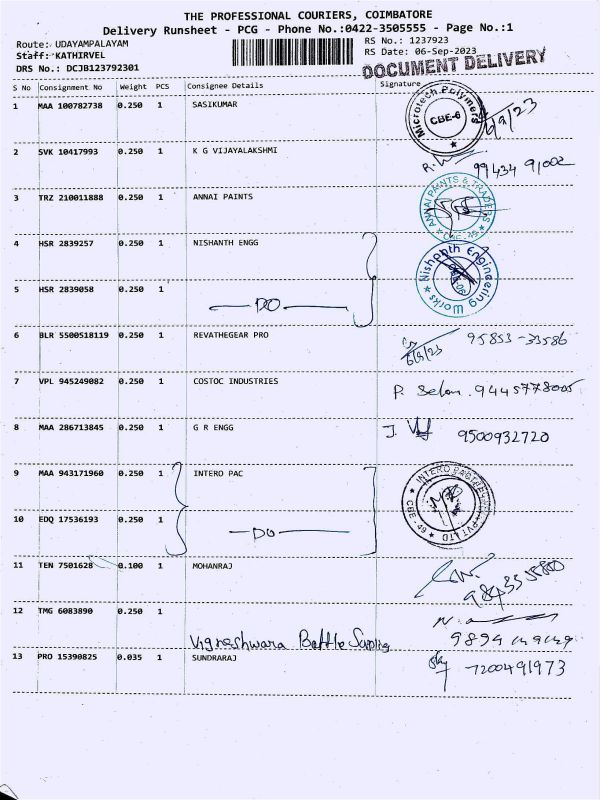 THE PROFESSIONAL COURIERS, COIMBATORE
Delivery Runsheet - PCG - Phone No.:0422-3505555 - Page No.:1
Route: UDAYAMPALAYAM RS No.: 1237923
Staff: KATHIRVEL RS Date: 06-Sep-2023
DRS No.: DCJB123792301 DOCUMENT DELIVERY
S No Consignment No Weight PCS Consignee Details Signature
1 MAA 100782738 0.250 1 SASIKUMAR Microtech Polymers CBE-6 6/9/23
2 SVK 10417993 0.250 1 K G VIJAYALAKSHMI 99434 91002
3 TRZ 210011888 0.250 1 ANNAI PAINTS ANNAI PAINTS & TRADERS CBE-49
4 HSR 2839257 0.250 1 NISHANTH ENGG Nishanth Engineering Works
5 HSR 2839058 0.250 1 DO
6 BLR 5500518119 0.250 1 REVATHEGEAR PRO 6/9/23 95853-33586
7 VPL 945249082 0.250 1 COSTOC INDUSTRIES P. Selan. 9445778005
8 MAA 286713845 0.250 1 G R ENGG J. 9500932720
9 MAA 943171960 0.250 1 INTERO PAC INTERO PVT LTD CBE-49
10 EDQ 17536193 0.250 1 DO
11 TEN 7501628 0.100 1 MOHANRAJ
12 TMG 6083890 0.250 1 Vigneshwara Bottle N.
9894
13 PRO 15390825 0.035 1 SUNDRARAJ 7200491973